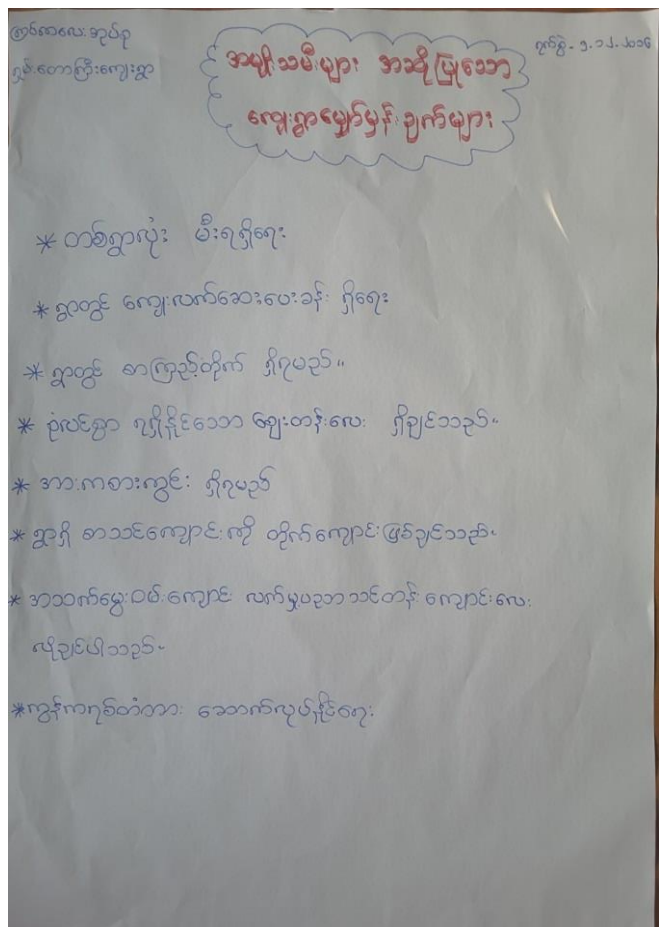 ကြစ်စာလေးအုပ်စု
ရှမ်းတောကြီးကျေးရွာ
ရက်စွဲ - ၁.၁၂.၂၀၁၆
အမျိုးသမီးများ အဆိုပြုသော
ကျေးရွာမျှော်မှန်းချက်များ
* တစ်ရွာလုံး မီးရရှိရေး
* ရွာတွင် ကျေးလက်ဆေးပေးခန်း ရှိရေး
* ရွာတွင် စာကြည့်တိုက် ရှိရမည်။
* စုံလင်စွာ ရရှိနိုင်သော ဈေးတန်းလေး ရှိချင်သည်။
* အားကစားကွင်း ရှိရမည်
* ရွာရှိ စာသင်ကျောင်းကို တိုက်ကျောင်းဖြစ်ချင်သည်။
* အသက်မွေးဝမ်းကျောင်း လက်မှုပညာသင်တန်းကျောင်းလေး
လိုချင်ပါသည်။
* ကွန်ကရစ်တံတား ဆောက်လုပ်နိုင်ရေး